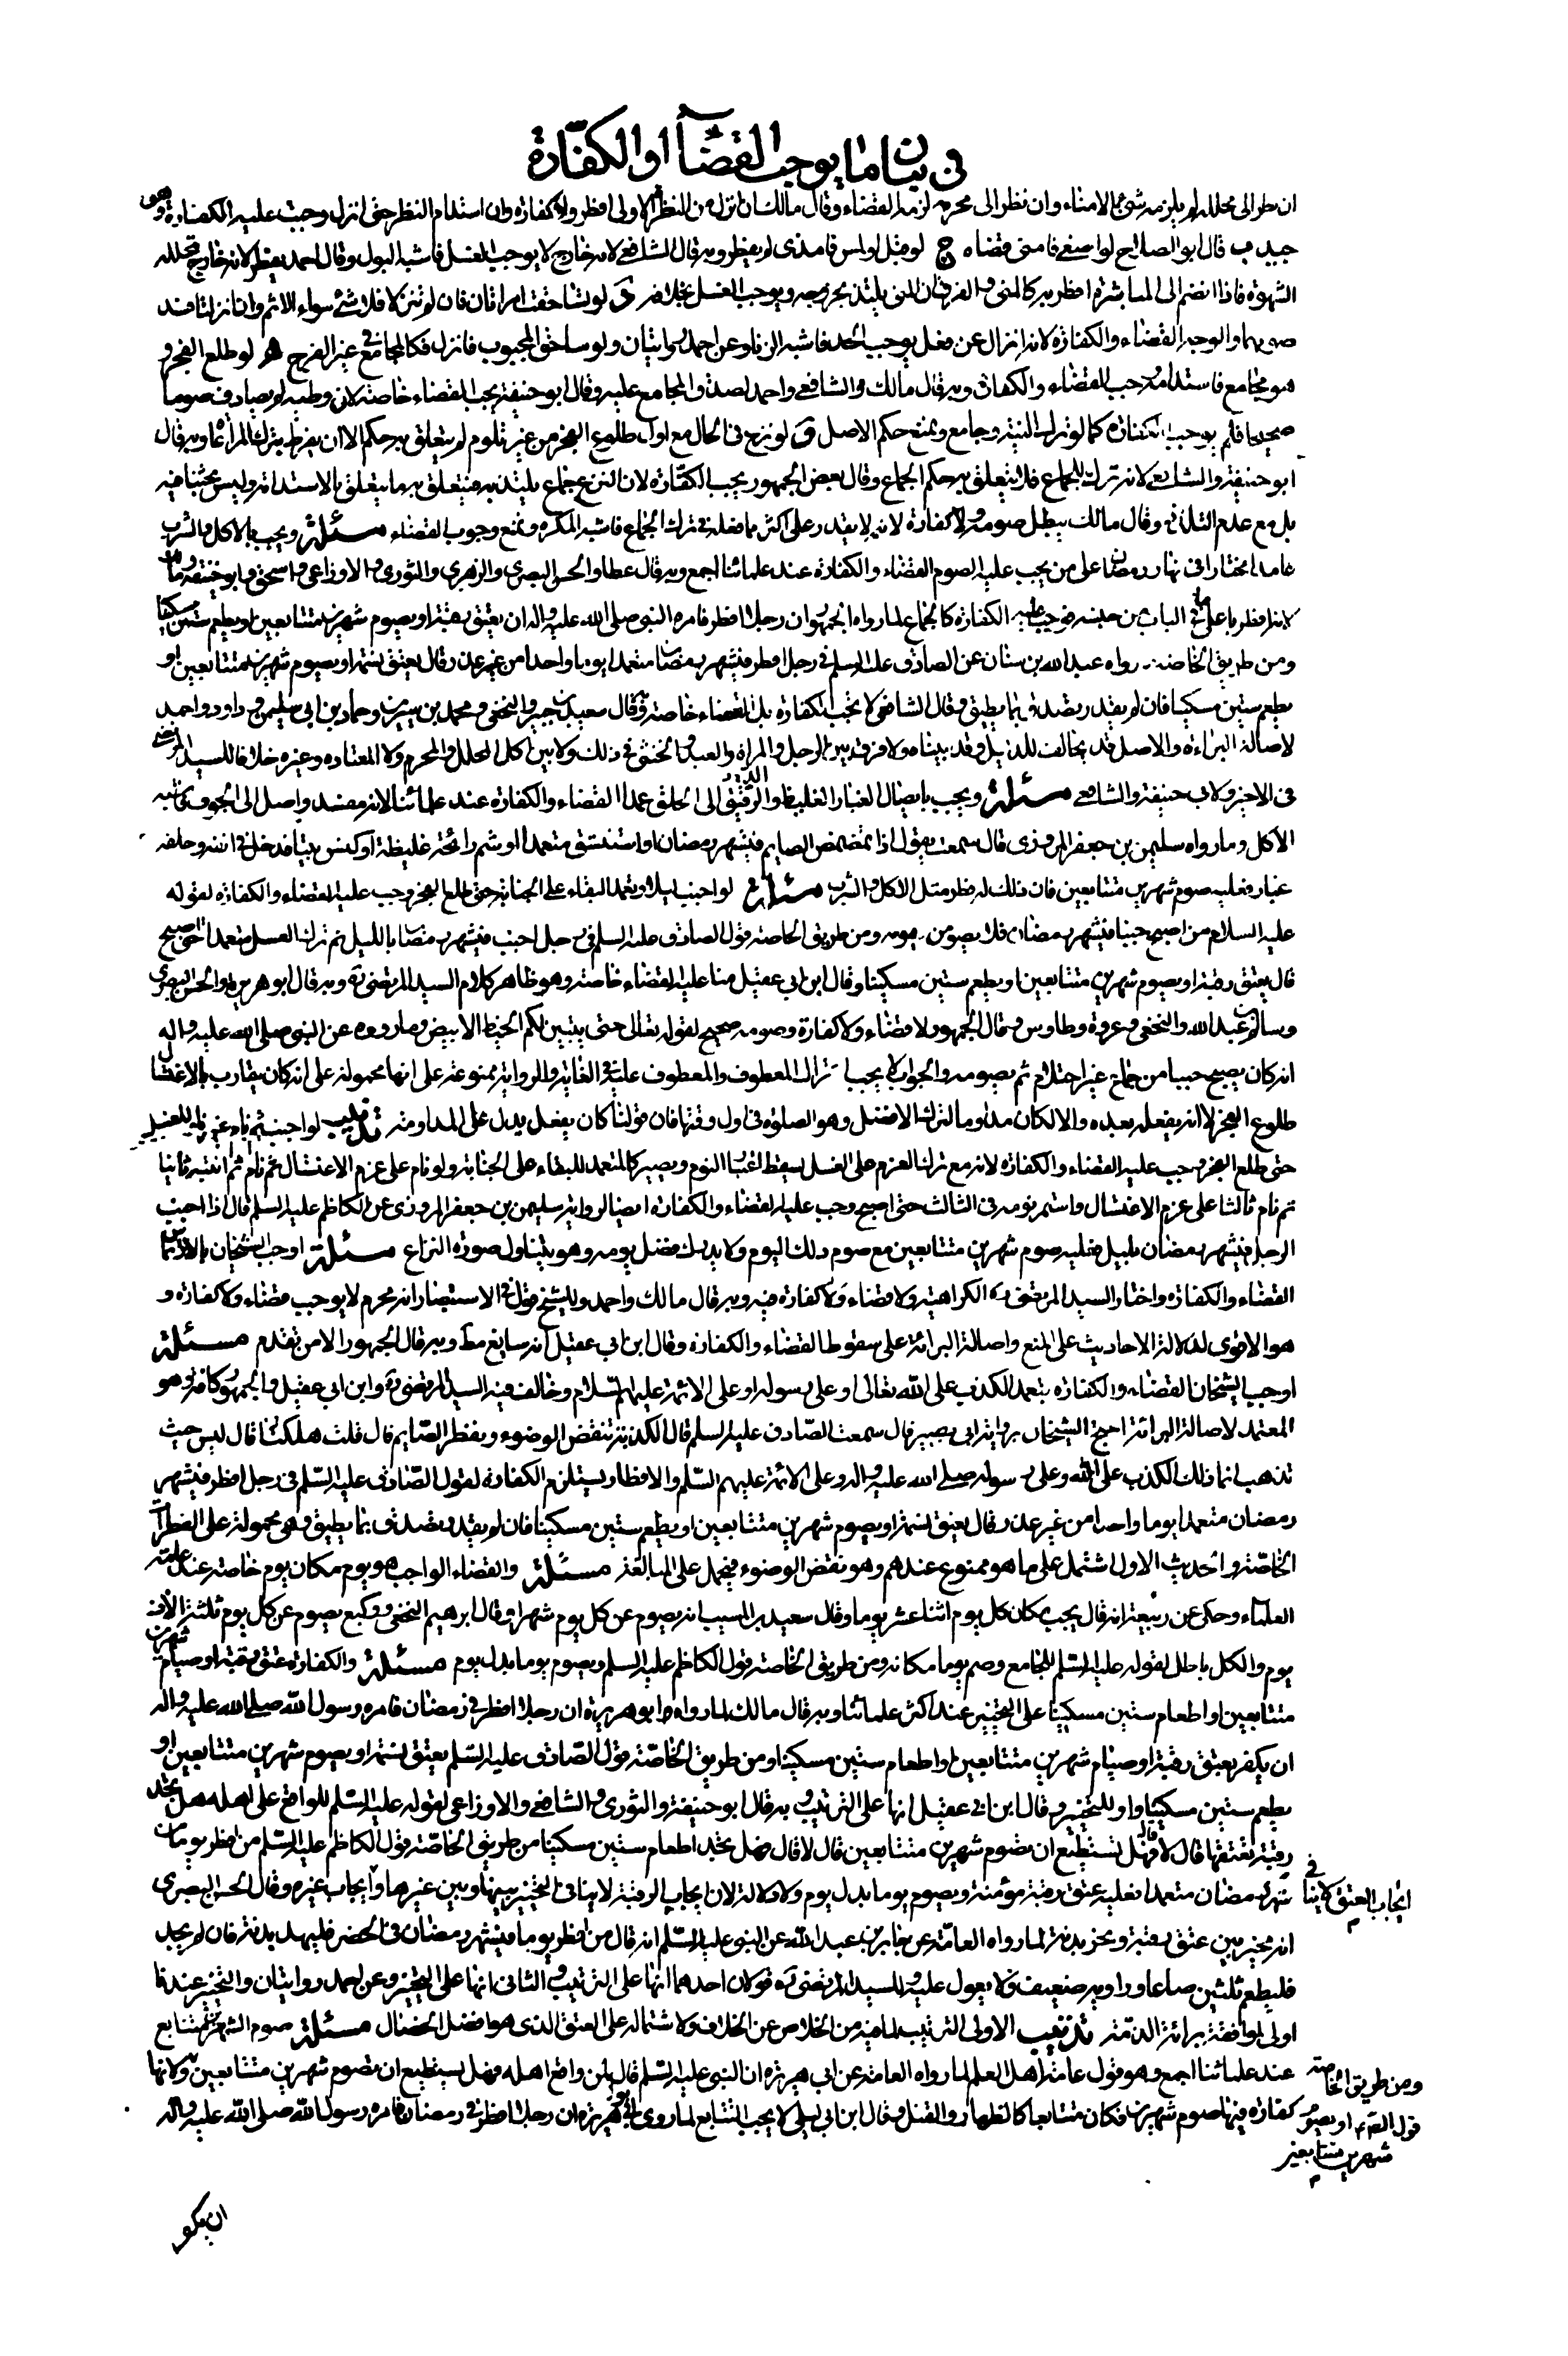 في بيان ما يوجب القضاء او الكفارة
ان نظر الى محللة لم يلزمه شئ بالامناء وان نظر الى محرمة لزمه القضاء وقال مالك ان انزل من النظر الاولى افطر ولا كفارة وان استدام النظر حتى انزل وجبت عليه الكفارة وهو
جيد ب قال ابو الصلاح لو اصغى فامنى قضاه ج لو قبل او لمس فامذى لم يفطر وبه قال الشافعي لانه خارج لا يوجب الغسل فاشبه البول وقال احمد يفطر لانه خارج تخلله
الشهوة فاذا انضم الى المباشرة افطر به كالمنى والفرق ان المنى يلتذ بخروجه ويوجب الغسل بخلافه د لو تساحقت امراتان فان لم تنزلا فلا شئ سواء الاثم وان انزلتا فسد
صومهما والوجه القضاء والكفارة لانه انزال عن فعل يوجب الحد فاشبه الزنا وعن احمد روايتان ولو ساحق المجبوب فانزل فكالمجامع في غير الفرج ه لو طلع الفجر و
هو مجامع فاستدامه وجب القضاء والكفارة وبه قال مالك والشافعي واحمد لصدق المجامع عليه وقال ابو حنيفة يجب القضاء خاصة لان وطيه لم يصادف صوما
صحيحا فلم يوجب الكفارة كما لو ترك النية وجامع ويمنع حكم الاصل و لو نزع في الحال مع اول طلوع الفجر من غير تلوم لم يتعلق به حكم الا ان يفرط بترك المراعاة وبه قال
ابو حنيفة والشافعي لانه ترك للجماع فلا يتعلق به حكم الجماع وقال بعض الجمهور يجب الكفارة لان النزع جماع يلتذ به فيتعلق به ما يتعلق بالاستدامة وليس بحثنا فيه
بل مع عدم التلذذ وقال مالك يبطل صومه ولا كفارة لانه لا يقدر على اكثر مما فعله في ترك الجماع فاشبه المكره ويمنع وجوب القضاء مسئلة ويجب بالاكل والشرب
عامدا مختارا في نهار رمضان على من يجب عليه الصوم القضاء والكفارة عند علمائنا اجمع وبه قال عطا والحسن البصري والزهري والثوري والاوزاعي واسحق وابو حنيفة ومالك
لانه افطر باعلى ما في الباب من جنسه فوجب عليه الكفارة كالجماع لما رواه الجمهور ان رجلا افطر فامره النبي صلى الله عليه واله ان يعتق رقبة او يصوم شهرين متتابعين او يطعم ستين مسكينا
ومن طريق الخاصة رواه عبد الله بن سنان عن الصادق عليه السلم في رجل افطر في شهر رمضان متعمدا يوما واحدا من غير عذر قال يعتق نسمة او يصوم شهرين متتابعين او
يطعم ستين مسكينا فان لم يقدر تصدق بما يطيق وقال الشافعي لا تجب الكفارة بل القضاء خاصة وبه قال سعيد بن جبير والنخعي ومحمد بن سيرين وحماد بن ابي سليمن وداود واحمد
لاصالة البراءة والاصل قد يخالف للدليل وقد بيناه ولا فرق بين الرجل والمراة والعبد والخنثى في ذلك ولا بين اكل المحلل والمحرم ولا المعتاد وغيره خلافا للسيد المرتضى
في الاخير ولابي حنيفة والشافعي مسئلة ويجب بايصال الغبار الغليظ والرقيق الى الحلق عمدا القضاء والكفارة عند علمائنا لانه مفسد واصل الى الجوف فاشبه
الاكل وما رواه سليمن بن جعفر المروزى قال سمعته يقول اذا تمضمض الصايم في شهر رمضان او استنشق متعمدا او شم رائحة غليظة او كنس بيتا فدخل في انفه وحلقه
غبار فعليه صوم شهرين متتابعين فان ذلك له فطر مثل الاكل والشرب مسئلة لو اجنب ليلا وتعمد البقاء على الجنابة حتى طلع الفجر وجب عليه القضاء والكفارة لقوله
عليه السلام من اصبح جنبا في شهر رمضان فلا يصومن يومه ومن طريق الخاصة قول الصادق عليه السلم في رجل اجنب في شهر رمضان بالليل ثم ترك الغسل متعمدا حتى اصبح
قال يعتق رقبة او يصوم شهرين متتابعين او يطعم ستين مسكينا وقال ابن ابي عقيل منا عليه القضاء خاصة وهو ظاهر كلام السيد المرتضى ره وبه قال ابو هريرة والحسن البصري
وسالم بن عبد الله والنخعي وعروة وطاوس وقال الجمهور لا قضاء ولا كفارة وصومه صحيح لقوله تعالى حتى يتبين لكم الخيط الابيض وما رووه عن النبي صلى الله عليه واله
انه كان يصبح جنبا من جماع غير احتلام ثم يصومه والجواب لا يجب اشتراك المعطوف والمعطوف عليه في الغاية والرواية ممنوعة على انها محمولة على انه كان يقارب بالاغتسال
طلوع الفجر لا انه يفعله بعده والا لكان مداوما لترك الافضل وهو الصلوة في اول وقتها فان قولنا كان يفعل يدل على المداومة تذنيب لو اجنب ثم نام غير ناو للغسل
حتى طلع الفجر وجب عليه القضاء والكفارة لانه مع ترك العزم على الغسل يسقط اعتبار النوم ويصير كالمتعمد للبقاء على الجنابة ولو نام على عزم الاغتسال ثم نام ثم انتبه ثانيا
ثم نام ثالثا على عزم الاغتسال واستمر نومه في الثالث حتى اصبح وجب عليه القضاء والكفارة ايضا لرواية سليمن بن جعفر المروزى عن الكاظم عليه السلم قال اذا اجنب
الرجل في شهر رمضان بليل فعليه صوم شهرين متتابعين مع صوم ذلك اليوم ولا يدرك فضل يومه وهو يتناول صورة النزاع مسئلة اوجب الشيخان بالارتماس
القضاء والكفارة واختار السيد المرتضى ره الكراهية ولا قضاء ولا كفارة فيه وبه قال مالك واحمد وللشيخ قول في الاستبصار انه محرم لا يوجب قضاء ولا كفارة و
هو الاقوى لدلالة الاحاديث على المنع واصالة البرائة على سقوط القضاء والكفارة وقال ابن ابي عقيل انه سايغ مط وبه قال الجمهور الا من تقدم مسئلة
اوجب الشيخان القضاء والكفارة بتعمد الكذب على الله تعالى او على رسوله او على الائمة عليهم السلام وخالف فيه السيد المرتضى ره وابن ابي عقيل والجمهور كافة وهو
المعتمد لاصالة البرائة احتج الشيخان برواية ابي بصير قال سمعت الصادق عليه السلم قال الكذبة تنقض الوضوء وتفطر الصايم قال قلت هلكنا قال ليس حيث
تذهب انما ذلك الكذب على الله وعلى رسوله صلى الله عليه واله وعلى الائمة عليهم السلم والافطار يستلزم الكفارة لقول الصادق عليه السلم في رجل افطر في شهر
رمضان متعمدا يوما واحدا من غير عذر قال يعتق نسمة او يصوم شهرين متتابعين او يطعم ستين مسكينا فان لم يقدر تصدق بما يطيق وهى محمولة على المفطرات
الخاصة والحديث الاول اشتمل على ما هو ممنوع عندهم وهو نقض الوضوء فيحمل على المبالغة مسئلة والقضاء الواجب هو يوم مكان يوم خاصة عند عامة
العلماء وحكى عن ربيعة انه قال يجب مكان كل يوم اثنا عشر يوما وقال سعيد بن المسيب انه يصوم عن كل يوم شهرا وقال ابرهيم النخعي ووكيع يصوم عن كل يوم ثلثة الاف
يوم والكل باطل لقوله عليه السلم للمجامع وصم يوما مكانه ومن طريق الخاصة قول الكاظم عليه السلم ويصوم يوما بدل يوم مسئلة والكفارة عتق رقبة او صيام شهرين
متتابعين او اطعام ستين مسكينا على التخيير عند اكثر علمائنا وبه قال مالك لما رواه ابو هريرة ان رجلا افطر في رمضان فامره رسول الله صلى الله عليه واله
ان يكفر بعتق رقبة او صيام شهرين متتابعين او اطعام ستين مسكينا ومن طريق الخاصة قول الصادق عليه السلم يعتق نسمة او يصوم شهرين متتابعين او
يطعم ستين مسكينا واو للتخيير وقال ابن ابي عقيل انها على الترتيب وبه قال ابو حنيفة والثورى والشافعي والاوزاعي لقوله عليه السلم للواقع على اهله هل تجد
رقبة تعتقها قال لا قال فهل تستطيع ان تصوم شهرين متتابعين قال لا قال فهل تجد اطعام ستين مسكينا من طريق الخاصة قول الكاظم عليه السلم من افطر يوما من
شهر رمضان متعمدا فعليه عتق رقبة مؤمنة ويصوم يوما بدل يوم ولا دلالة لان ايجاب الرقبة لا ينافي التخيير بينها وبين غيرها وايجاب غيره وقال الحسن البصري
في ايجاب العتق كما بينا
انه مخير بين عتق رقبة ونحر بدنة لما رواه العامة عن جابر بن عبد الله عن النبي عليه السلم انه قال من افطر يوما في شهر رمضان في الحضر فليهد بدنة فان لم يجد
فليطعم ثلثين صاعا وراويه ضعيف فلا يعول عليه وللسيد المرتضى ره قولان احدهما انها على الترتيب والثاني انها على التخيير وعن احمد روايتان والتخيير عندنا
اولى لموافقة برائة الذمة تذنيب الاولى الترتيب لما فيه من الخلاص عن الخلاف ولاشتماله على العتق الذى هو افضل الخصال مسئلة صوم الشهرين متتابع
عند علمائنا اجمع وهو قول عامة اهل العلم لما رواه العامة عن ابي هريرة ان النبي عليه السلم قال لمن واقع اهله فهل تستطيع ان تصوم شهرين متتابعين ولانها
ومن طريق الخاصة
كفارة فيها صوم شهرين فكان متتابعا كالظهار والقتل وقال ابن ابي ليلى لا يجب التتابع لما روى ابو هريرة ان رجلا افطر في رمضان فامره رسول الله صلى الله عليه واله
قول الصادق ع او يصوم
شهرين متتابعين
ان يكفر